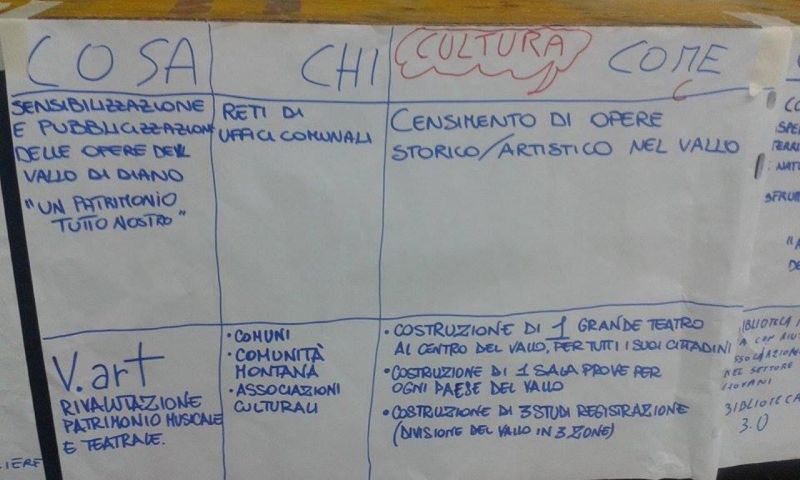 COSA
CHI
CULTURA
COME
SENSIBILIZZAZIONE
E PUBBLICIZZAZIONE
DELLE OPERE DEL
VALLO DI DIANO
"UN PATRIMONIO
TUTTO NOSTRO"
RETI DI
UFFICI COMUNALI
CENSIMENTO DI OPERE
STORICO/ARTISTICO NEL VALLO
V.art
RIVALUTAZIONE
PATRIMONIO MUSICALE
E TEATRALE.
• COMUNI
• COMUNITÀ
MONTANA
• ASSOCIAZIONI
CULTURALI
• COSTRUZIONE DI 1 GRANDE TEATRO
AL CENTRO DEL VALLO, PER TUTTI I SUOI CITTADINI
• COSTRUZIONE DI 1 SALA PROVE PER
OGNI PAESE DEL VALLO
• COSTRUZIONE DI 3 STUDI REGISTRAZIONE
(DIVISIONE DEL VALLO IN 3 ZONE)
NEL SETTORE
3.0